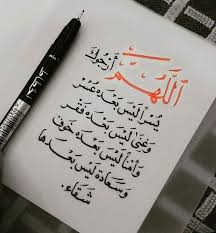 اللهم أرجوك
يسرًا ليس بعده عسر
وغنى ليس بعده فقر
وأمنًا ليس بعده خوف
وسعادة ليس بعدها
شقاء